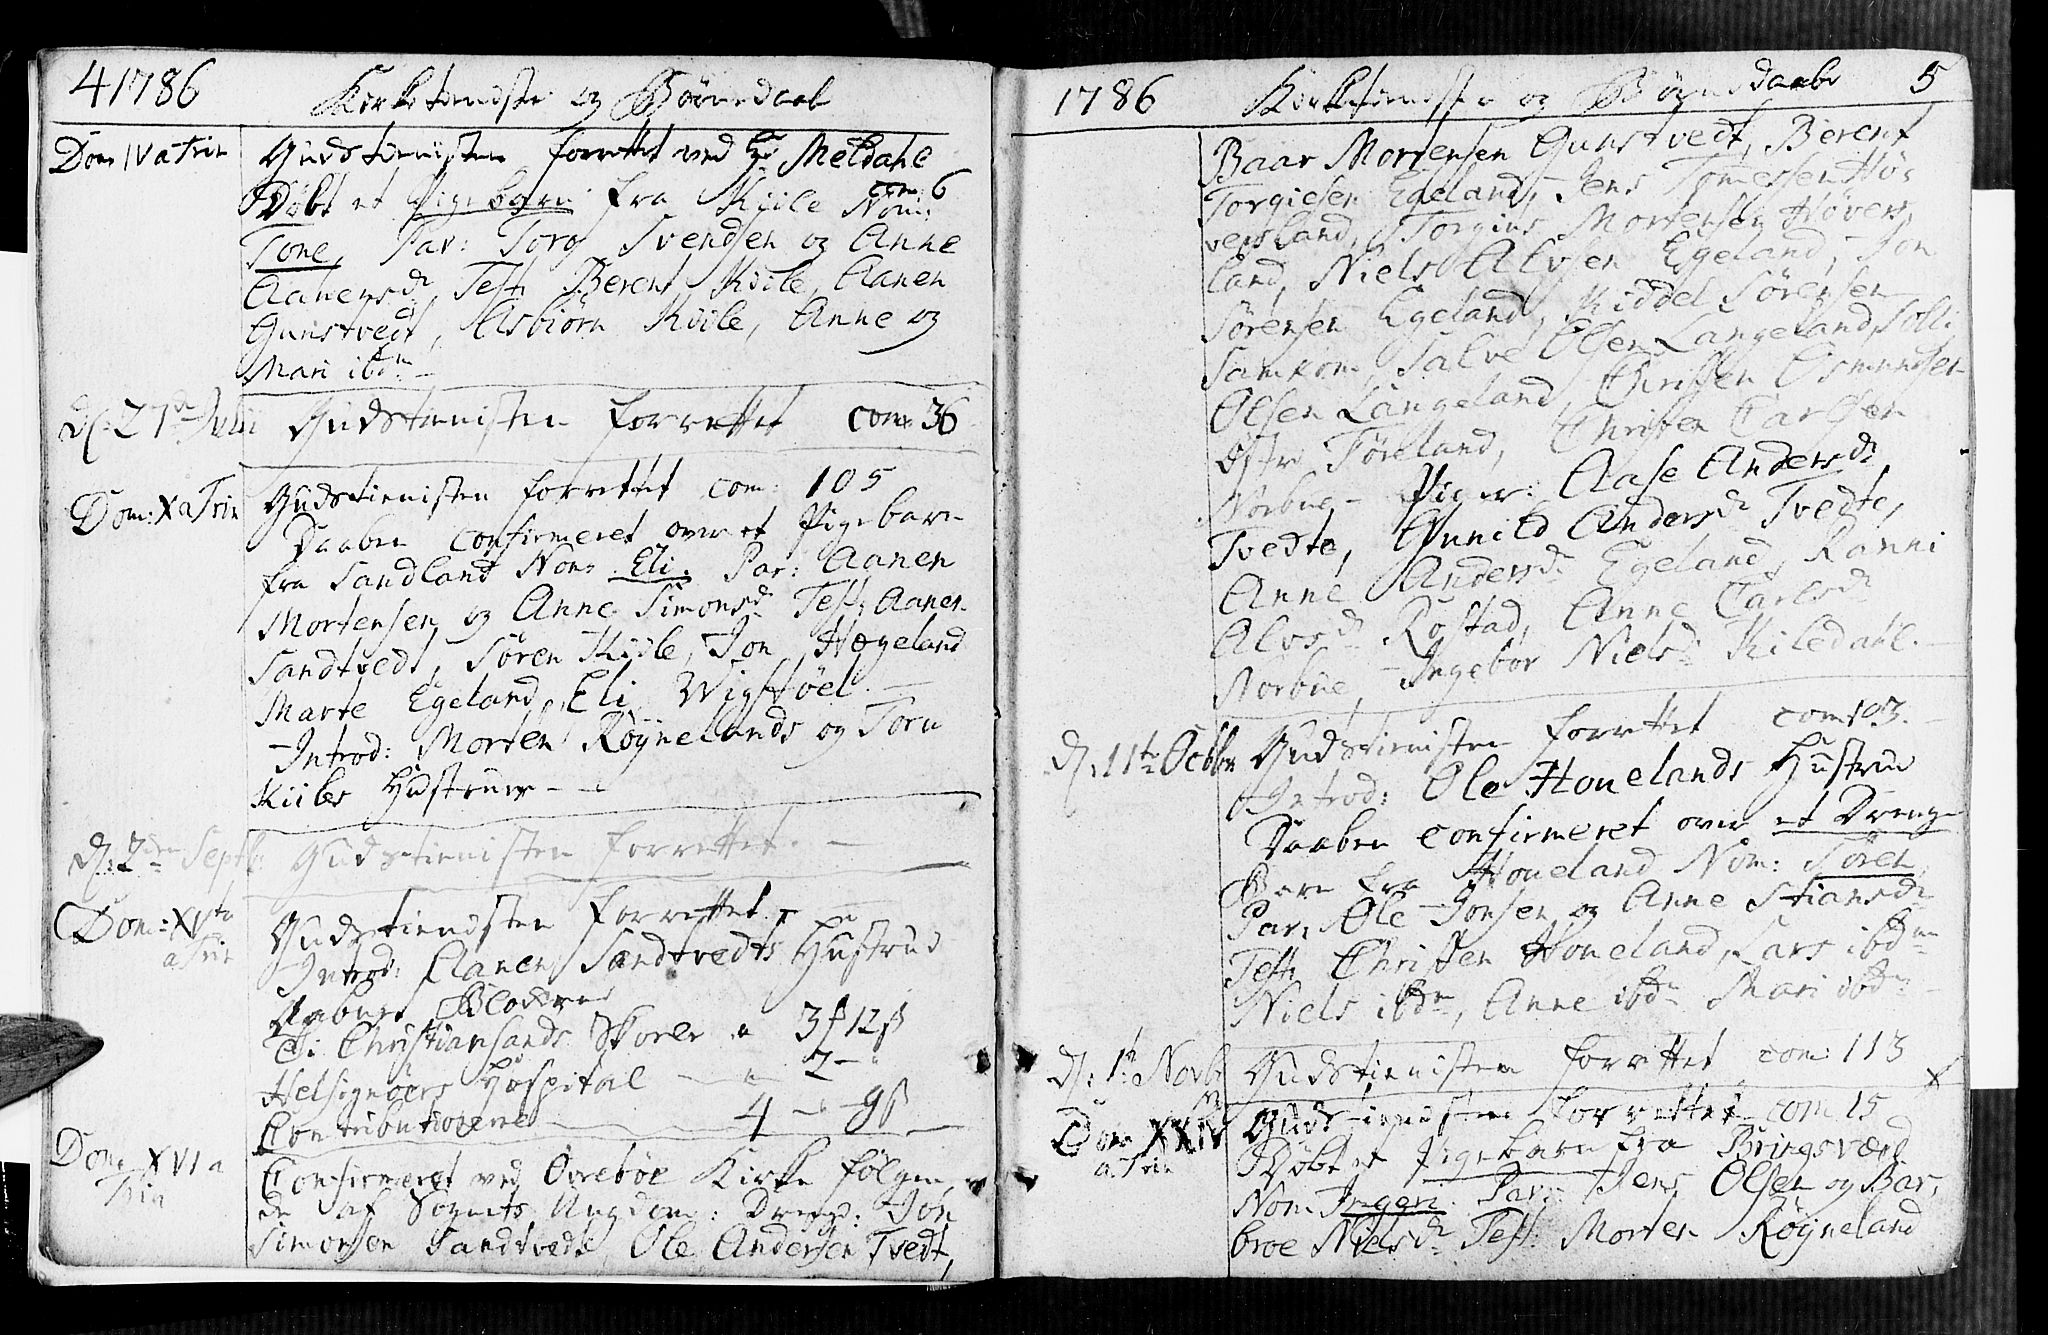 4 1786 Kirketieniste og Børnedaab
Dom IV a Trin Gudstienisten forrettet ved Hr Meldahl
com: 6
Døbt et Pigebarn fra Kiile Nom:
Tone, Par: Torgs Svendsen og Anne
Aanensdr Test: Berent Kiile, Aanen
Gunstvedt, Asbiørn Kiile, Anne og
Mari ibdm
d: 27de Julii Gudstienisten forrettet com: 36
Dom: X a Trin Gudstienisten forrettet com: 105
Daaben confirmeret over et Pigebarn
fra Sandland Nom: Eli. Par: Aanen
Mortensen og Anne Simonsdr Test: Aanen
Sandtvedt, Søren Kiile, Jon Hægeland
Marte Egeland, Eli Wigstøel.
Introd: Morten Røynelands og Torn
Kiiles Hustruer
d: 2den Septb: Gudstienisten forrettet.
Dom: XVto a Trin Gudstiendsten forrettet.
Introd: Aanen Sandtvedts Hustrue
Aabnet Blokkene
Ti Christiansands Skoele 3 f 12 ß
Helsignøers Hospital 2 -
Contributionene 4 - 9 ß
Dom XVI a Trin Confirmeret ved Øvrebøe Kirke følgen
de af Sognets Ungdom: Dreng: Jon
Simonsen Sandtvedt, Ole Andersen Tvedt,
1786 Kirketiendste og Børnedaabe 5
Baar Mortensen Gunstvedt, Berent
Torgiesen Egeland, Jens Tomessen Hø-
versland, Torgius Mortensen Høvers
land, Niels Alvsen Egeland, Jon
Sørensen Egeland, Kiddel Sørensen
Samkom, Salve Olsen Langeland, Soll:
Olsen Langeland, Christen Osmundsen
Østre Føreland, Christen Carlsen
Norbue - Piger: Aase Andersdr
Tvedte, Gunild Andersdr Tvedte,
Anne Andersdr Egeland, Ranni
Alvsdr Røstad, Anne Carlsdr
Norbue, Ingebor Nielsdr Kiledahl.
d: 11te Octbr Gudstienisten forrettet com: 103.
Introd: Ole Honelands Hustrue
Daaben confirmeret over et Drenge
Barn fra Honeland Nom: Søren
Par: Ole Jonsen og Anne Stiansdr
Test: Christen Honeland, Lars ibdm
Niels ibdm, Anne ibdm Mari ibdm
d: 1te Novbr Gudstienisten forrettet com: 113
Dom XXIV a Trin Gudstiendsten forrettet com 15
Døbt et Pigebarn fra Bringsværd
Nom Ingeri Par: Jens Olsen og Bar,
broe Nielsdr Test: Morten Røyneland